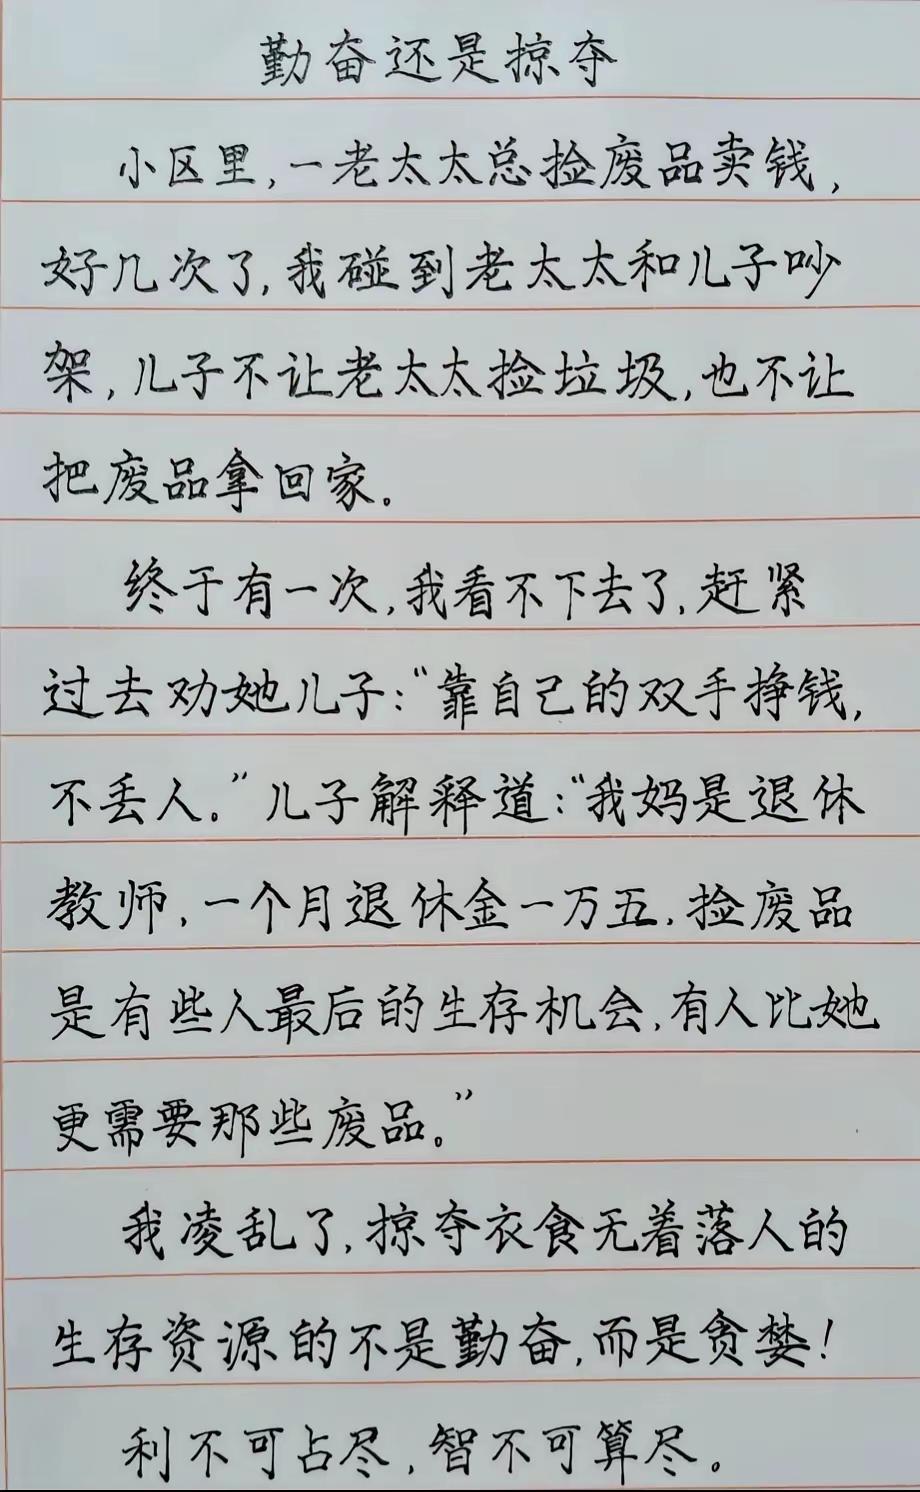 勤奋还是掠夺
小区里,一老太太总捡废品卖钱,
好几次了,我碰到老太太和儿子吵
架,儿子不让老太太捡垃圾,也不让
把废品拿回家。
终于有一次,我看不下去了,赶紧
过去劝她儿子:“靠自己的双手挣钱,
不丢人。”儿子解释道:“我妈是退休
教师,一个月退休金一万五,捡废品
是有些人最后的生存机会,有人比她
更需要那些废品。”
我凌乱了,掠夺衣食无着落人的
生存资源的不是勤奋,而是贪婪!
利不可占尽,智不可算尽。